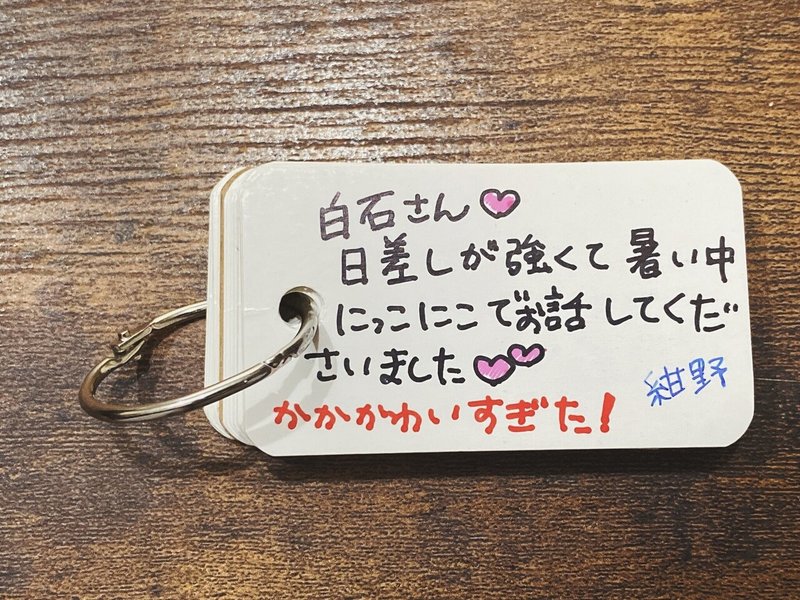 白石さん♡
日差しが強くて暑い中
にっこにこでお話してくだ
さいました♡♡
紺野
かかかわいすぎた!